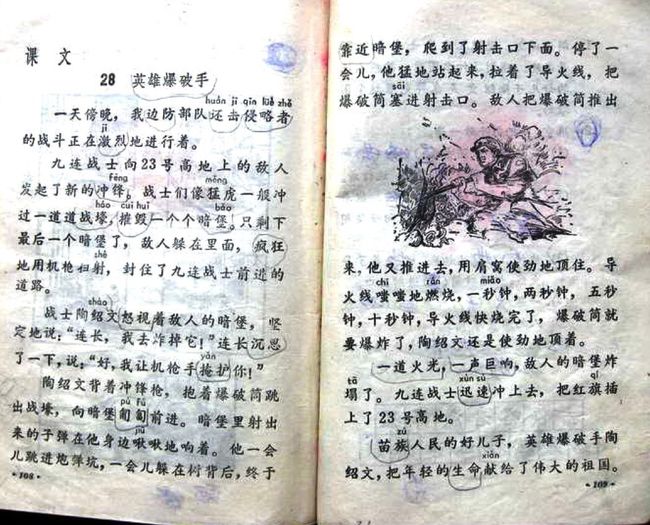 课文
28 英雄爆破手
huán jī qīn lüè zhě
一天傍晚，我边防部队还击侵略者
jī
的战斗正在激烈地进行着。
九连战士向23号高地上的敌人
fēng měng
发起了新的冲锋，战士们像猛虎一般冲
háo cuī huǐ bǎo
过一道道战壕，摧毁一个个暗堡。只剩下
最后一个暗堡了，敌人躲在里面，疯狂
shè
地用机枪扫射，封住了九连战士前进的
道路。
shào
战士陶绍文怒视着敌人的暗堡，坚
定地说：“连长，我去炸掉它！”连长沉思
yǎn
了一下，说：“好，我让机枪手掩护你！”
陶绍文背着冲锋枪，抱着爆破筒跳
pú fú
出战壕，向暗堡匍匐前进。暗堡里射出
jiū
来的子弹在他身边啾啾地响着。他一会
儿跳进炮弹坑，一会儿躲在树背后，终于
·108·
靠近暗堡，爬到了射击口下面。停了一
会儿，他猛地站起来，拉着了导火线，把
sāi
爆破筒塞进射击口。敌人把爆破筒推出
来，他又推进去，用肩窝使劲地顶住。导
chī rán miǎo
火线嗤嗤地燃烧，一秒钟，两秒钟，五秒
钟，十秒钟，导火线快烧完了，爆破筒就
要爆炸了，陶绍文还是使劲地顶着。
一道火光，一声巨响，敌人的暗堡炸
tā xùn sù qí
塌了。九连战士迅速冲上去，把红旗插
上了23号高地。
zú
苗族人民的好儿子，英雄爆破手陶
xiàn
绍文，把年轻的生命献给了伟大的祖国。
·109·